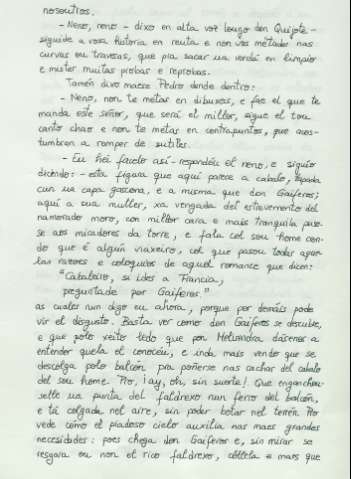 nosoutros.
- Neno, neno - dixo en alta voz lougo don Quijote -
siguide a vosa historia en reuta e non vos metades nas
curvas ou travesas, que pra sacar ua verdá en limpio
e mister muitas probas e reprobas.
Tamén dixo maese Pedro dende dentro:
- Neno, non te metas en dibuxos, e fae el que te
manda este señor, que será el millor, sigue el tou
canto chao e non te metas en contrapuntos, que acos-
tumbran a romper de sutiles.
- Eu hei facelo así - respondéu el neno, e siguío
dicindo: - esta figura que aquí parece a cabalo, tapada
cun ua capa gascona, e a misma que don Gaiferos;
aquí a sua muller, xa vengada del estrevemento del
namorado moro, con millor cara e mais tranquila púxo-
se aos miradores da torre, e fala col sou home cen-
do que é algún viaxeiro, col que pasou todas aque-
las razoes e coloquios de aquel romance que dicen:
"Cabaleiro, si ides a Francia,
preguntade por Gaiferos."
as cuales nun digo eu ahora, porque por demáis pode
vir el disgusto. Basta ver como don Gaiferos se descubre,
e que polo xeito ledo que pon Melisendra dásenos a
entender quela el conocéu, e inda mais vendo que se
descolga polo balcón pra poñerse nas cachas del cabalo
del sou home. Pro, ¡ay, oh, sin suerte! Que enganchou-
selle ua punta del faldrexo nun ferro del balcón,
e tá colgada nel aire, sin poder botar nel terrén. Pro
vede cómo el piadoso cielo auxilia nas maes grandes
necesidades: poes chega don Gaiferos e, sin mirar se
resgara ou non el rico faldrexo, cóllela e mais que